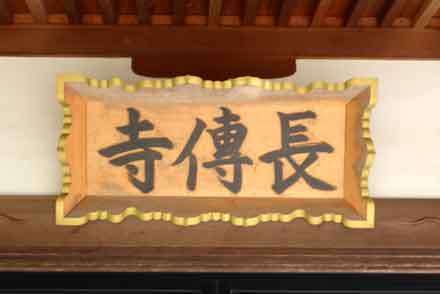 長傳寺